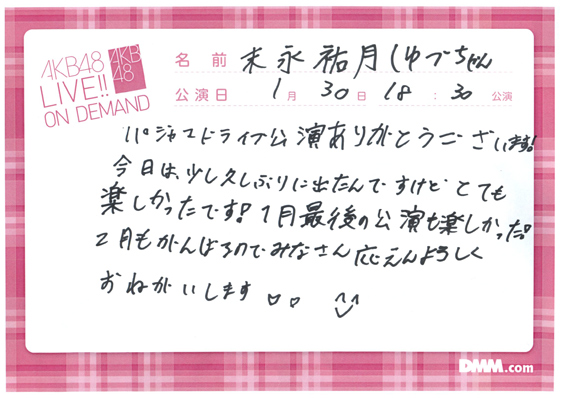 AKB48
LIVE!!
ON DEMAND
AKB
48
名前 末永祐月 ゆづちゃん
公演日 1月30日 18:30 公演
パジャマドライブ公演ありがとうございます!
今日は、少し久しぶりに出たんですけどとても
楽しかったです!1月最後の公演も楽しかった!
2月もがんばるのでみなさん応えんよろしく
おねがいします
DMM.com